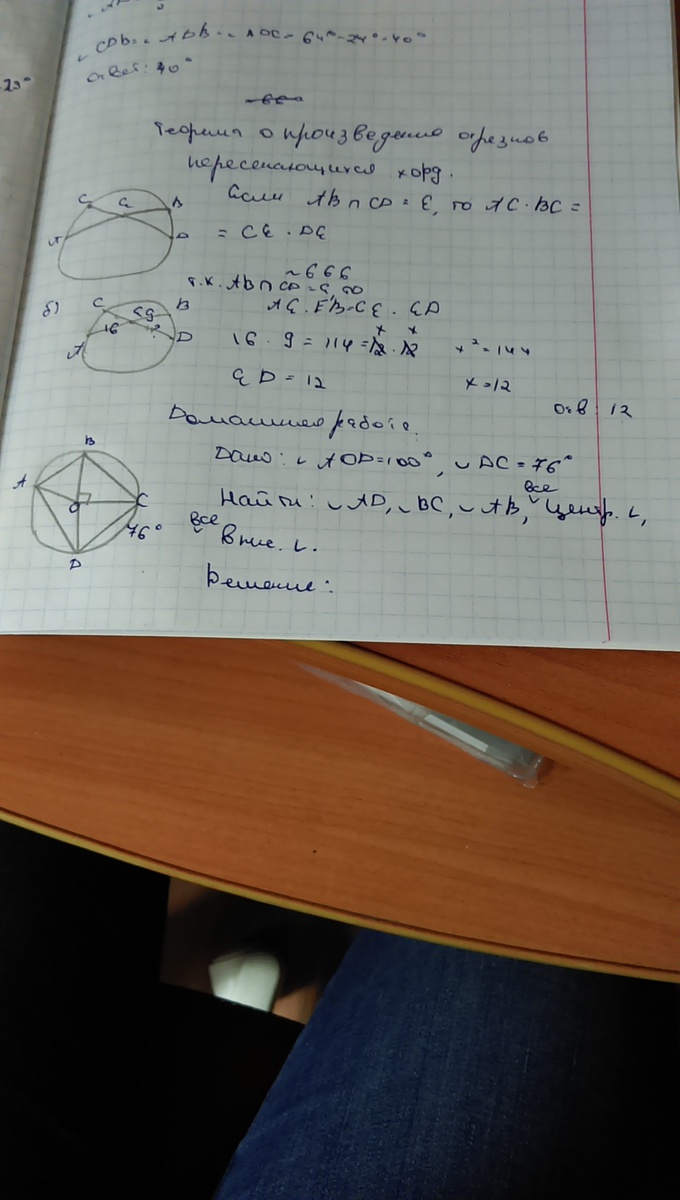 ◡ CDB = ◡ ADB - ◡ ADC = 64° - 24° = 40°
Ответ: 40°
23°
Теорима о произведение отрезков
пересекающихся хорд.
Если AB ∩ CD = E, то AC · BC =
= CE · DE
C E B
A D
~ 666
т.к. AB ∩ CD = E, то
б) AE · EB = CE · ED
C E 9 B
A 16 ? D
16 · 9 = 114 = 12 · 12 x² = 144
x x
ED = 12 x = 12
Отв: 12
Домашняя работа.
Дано: ∟ AOD = 100°, ◡ DC = 76°
Найти: ◡ AD, ◡ BC, ◡ AB, все центр. ∟,
все впис. ∟.
Решение:
B
A O C
76°
D